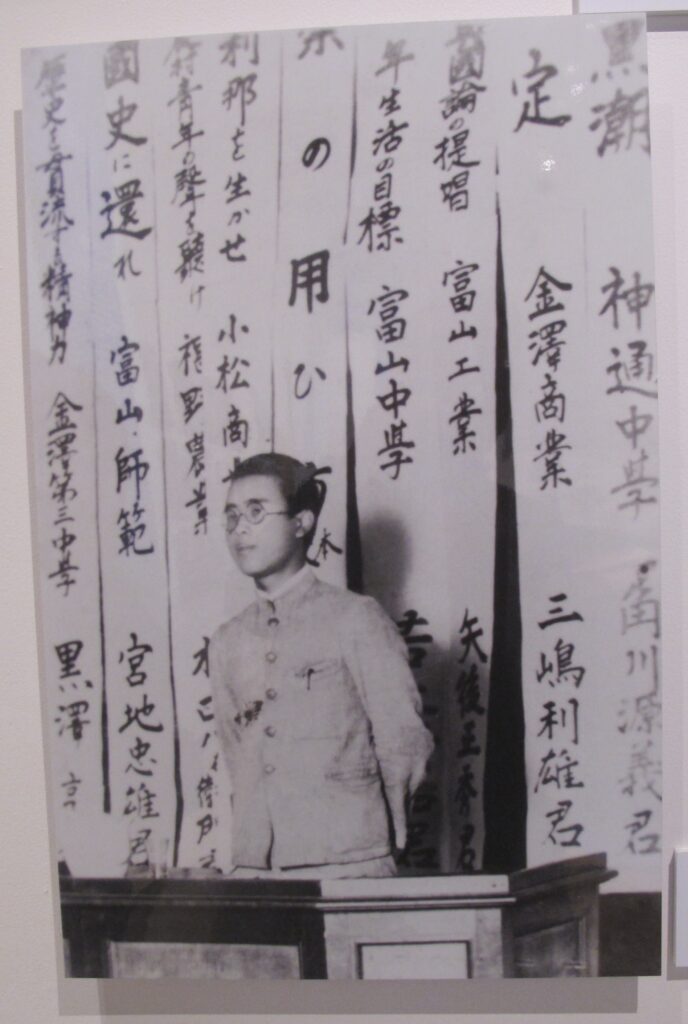 黒潮 神通中学 角川源義君
定 金澤商業 三嶋利雄君
國論の提唱 富山工業 矢後 君
年生活の目標 富山中学 君
の用ひ方
刹那を生かせ 小松商
村青年の聲を聴け 福野農業
國史に還れ 富山師範 宮地忠雄君
歴史を貫流する精神力 金澤第三中学 黒澤